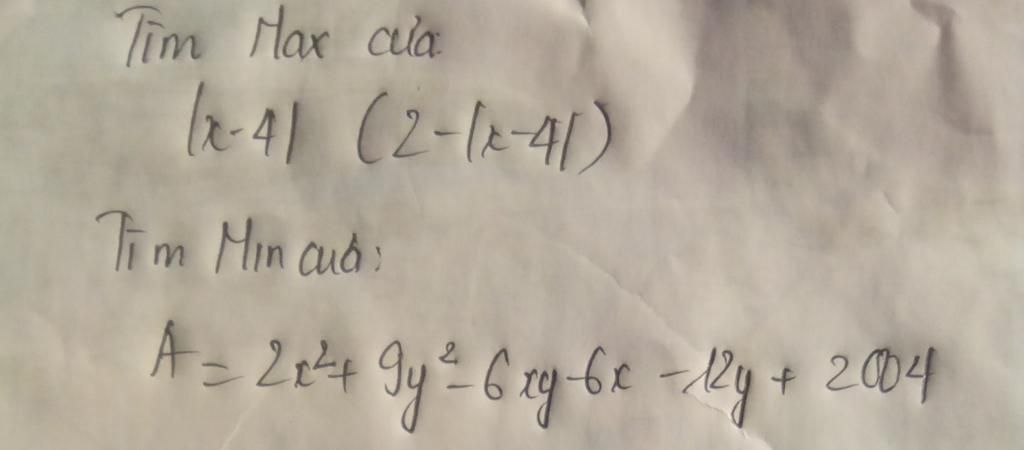 Tìm Max của:
|x-4| (2-|x-4|)
Tìm Min của:
A = 2x²+ 9y²-6xy-6x -12y + 2004